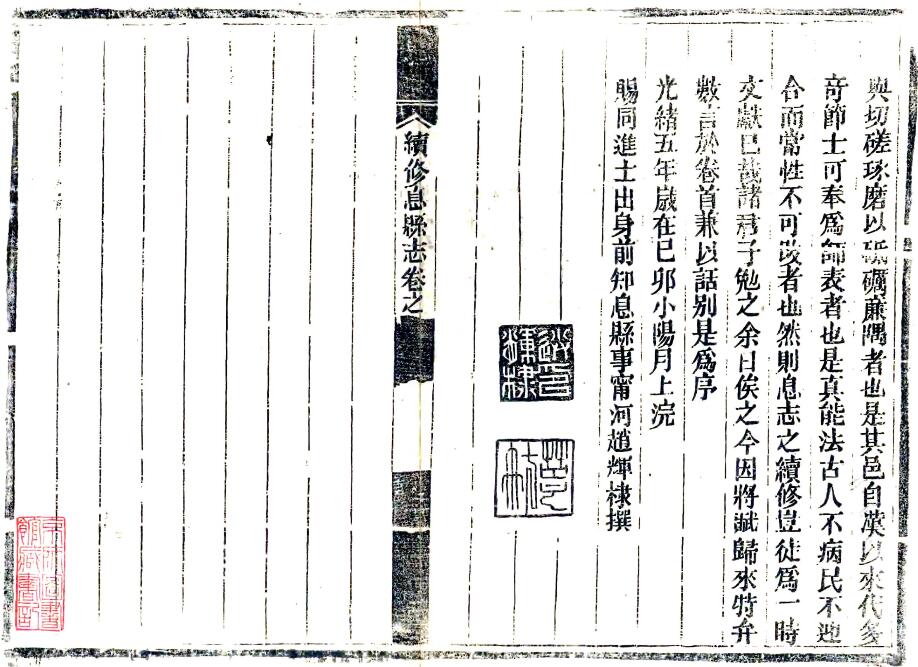 與切磋琢磨以砥礪廉隅者也是其邑自漢以來代多
奇節士可奉爲師表者也是真能法古人不病民不迎
合而常性不可改者也然則息志之續修豈徒爲一時
文獻已哉諸君子勉之余日俟之今因將賦歸來特弁
數言於卷首兼以話别是爲序
光緒五年歲在己卯小陽月上浣
賜同進士出身前知息縣事甯河趙輝棣撰
趙印輝棣
續修息縣志卷之